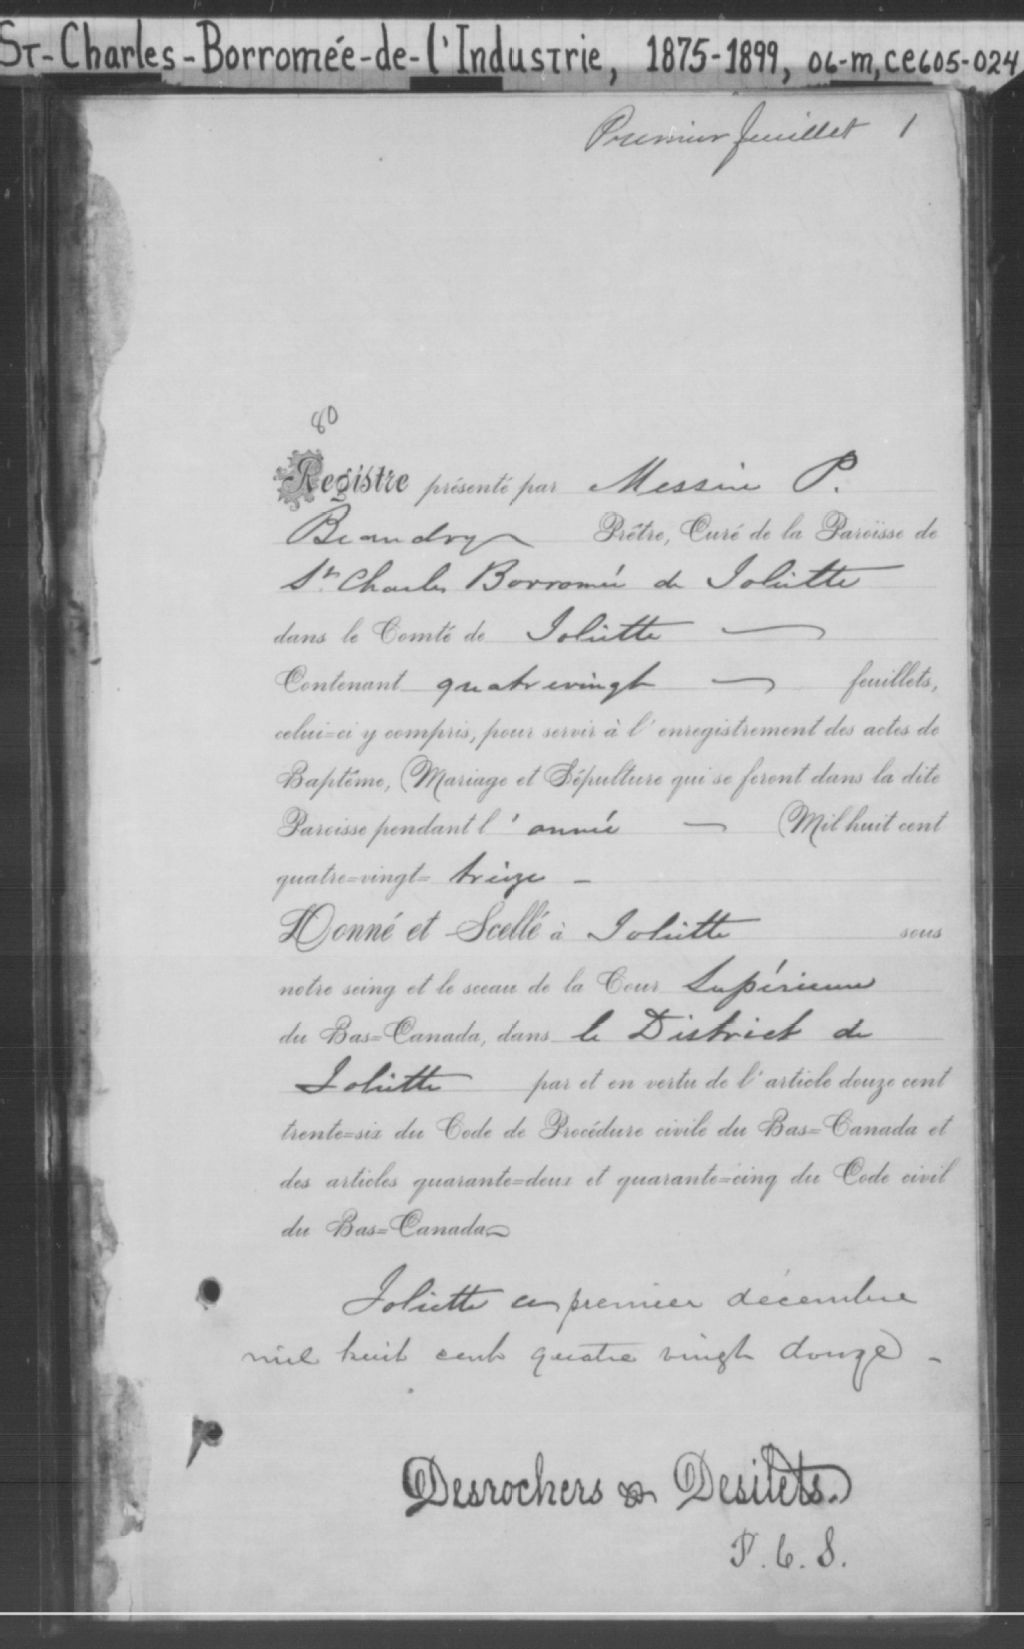 St-Charles-Borromée-de-l'Industrie, 1875-1899, 06-m, ce605-024
Premier feuillet 1
80
Registre présenté par Messire P.
Beaudry Prêtre, Curé de la Paroisse de
St. Charles Borromée de Joliette
dans le Comté de Joliette —
Contenant quatrevingt — feuillets,
celui=ci y compris, pour servir à l'enregistrement des actes de
Baptême, Mariage et Sépulture qui se feront dans la dite
Paroisse pendant l'année — Mil huit cent
quatre=vingt= treize —
Donné et Scellé à Joliette sous
notre seing et le sceau de la Cour Supérieure
du Bas=Canada, dans le District de
Joliette par et en vertu de l'article douze cent
trente=six du Code de Procédure civile du Bas=Canada et
des articles quarante=deux et quarante=cinq du Code civil
du Bas=Canada
Joliette ce premier décembre
mil huit cent quatre vingt douze —
Desrochers & Desilets.
P. C. S.